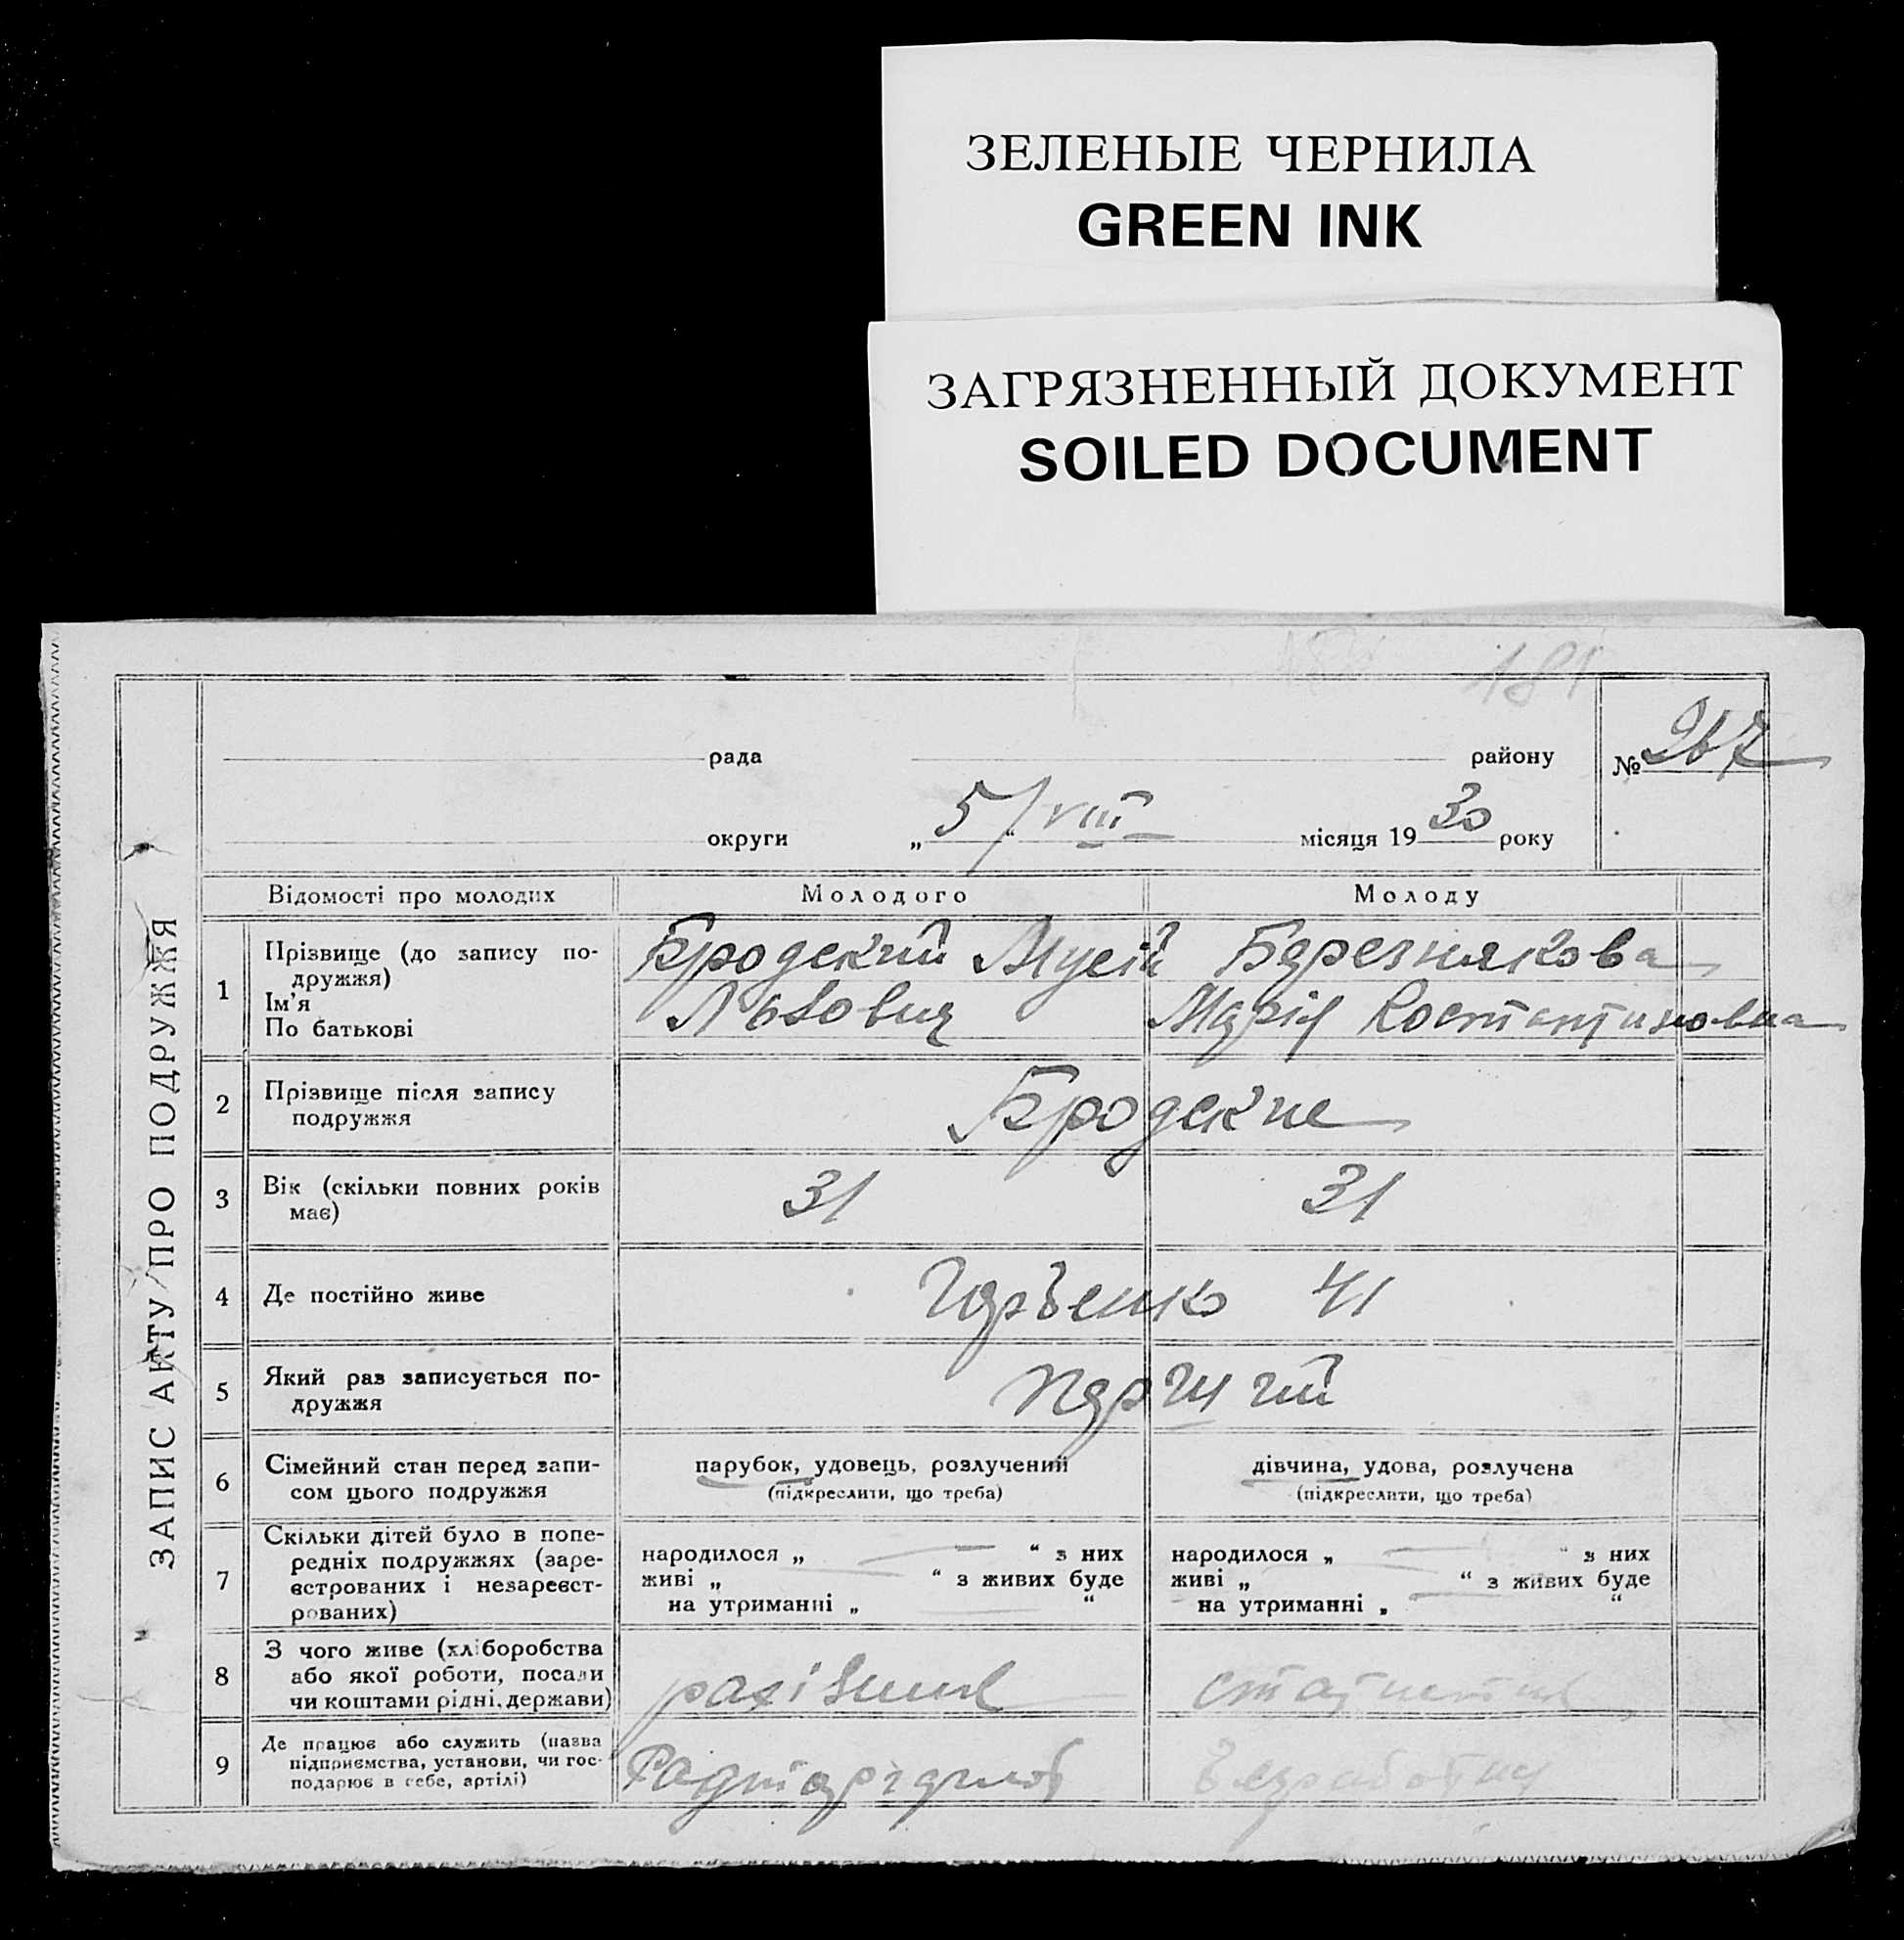 ЗЕЛЕНЫЕ ЧЕРНИЛА
GREEN INK
ЗАГРЯЗНЕННЫЙ ДОКУМЕНТ
SOILED DOCUMENT
181
ЗАПИС АКТУ ПРО ПОДРУЖЖЯ
рада району № 267
округи „5“ VIII місяця 1930 року
Відомості про молодих Молодого Молоду
1 Прізвище (до запису по-
дружжя)
Ім’я
По батькові
Бродский Мусій
Львович
Березнякова
Марія Костянтиновна
2 Прізвище після запису
подружжя
Бродские
3 Вік (скільки повних років
має)
31 31
4 Де постійно живе
41
5 Який раз записується по-
дружжя
перший
6 Сімейний стан перед запи-
сом цього подружжя
парубок, удовець, розлучений
(підкреслити, що треба)
дівчина, удова, розлучена
(підкреслити, що треба)
7 Скільки дітей було в попе-
редніх подружжях (заре-
єстрованих і незареєст-
рованих)
народилося „ — “ з них
живі „ — “ з живих буде
на утриманні „ — “
народилося „ — “ з них
живі „ — “ з живих буде
на утриманні „ — “
8 З чого живе (хліборобства
або якої роботи, посади
чи коштами рідні, держави)
9 Де працює або служить (назва
підприємства, установи, чи гос-
подарює в себе, артілі)